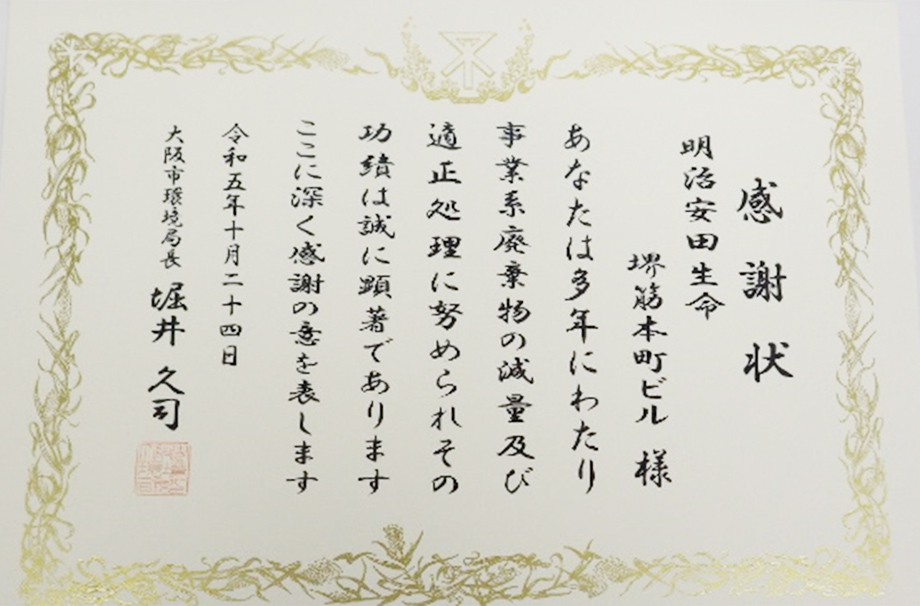 感謝状
明治安田生命
堺筋本町ビル 様
あなたは多年にわたり
事業系廃棄物の減量及び
適正処理に努められその
功績は誠に顕著であります
ここに深く感謝の意を表します
令和五年十月二十四日
大阪市環境局長 堀井 久司